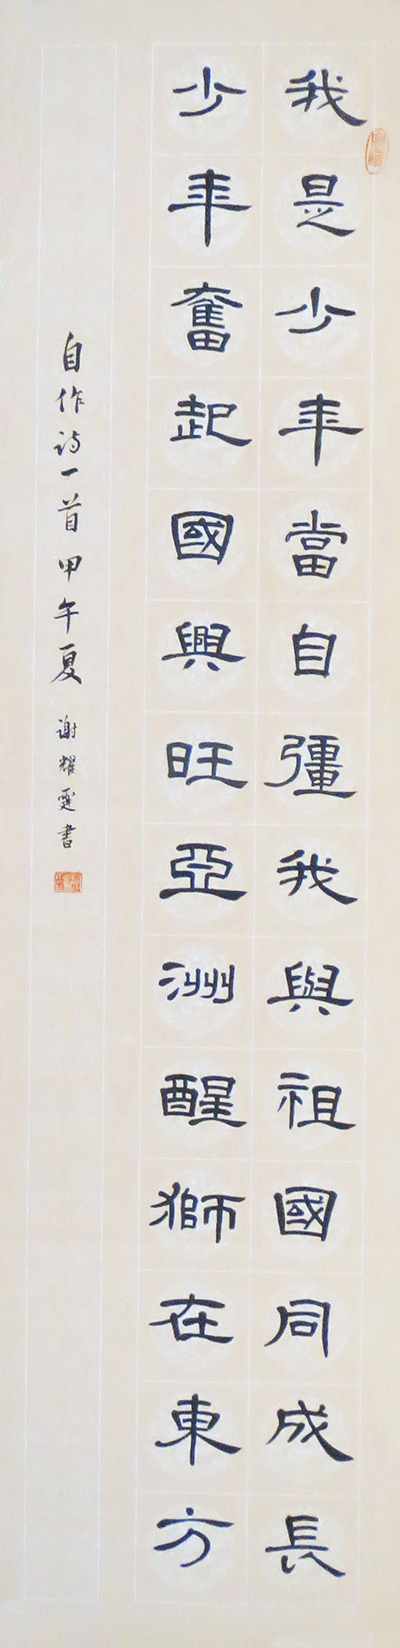 我是少年當自彊我與祖國同成長
少年奮起國興旺亞洲醒獅在東方
自作诗一首甲午夏 谢耀霆書